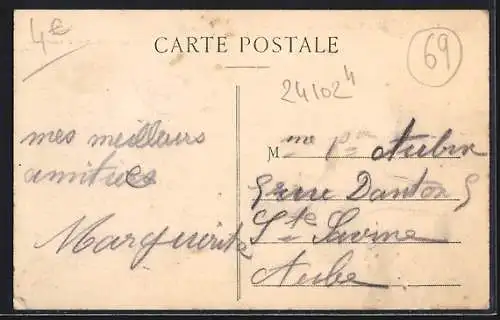 4€
CARTE POSTALE
69
241024
mes meilleurs
amitiées
Marguerite
Mme Aubin
5 rue Danton 5
Ste Savine
Aube